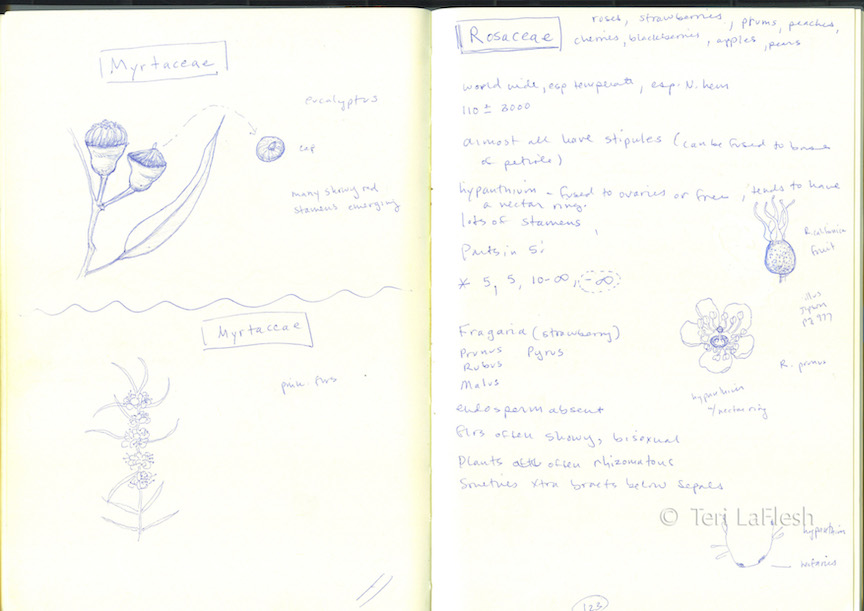 Myrtaceae
eucalyptus
cap
many showy red
stamens emerging
Myrtaceae
pink flrs
Rosaceae
roses, strawberries, plums, peaches,
cherries, blackberries, apples, pears
world wide, esp temperate, esp. N. hem
110 ± 3000
almost all have stipules (can be fused to bases
of petiole)
hypanthium - fused to ovaries or free, tends to have
a nectar ring.
lots of stamens,
Parts in 5!
* 5, 5, 10-∞, -∞
R. californica
fruit
pg 977
Fragaria (strawberry)
Prunus Pyrus
Rubus
Malus
R.
hypanthium
w/nectar ring
endosperm absent
flrs often showy, bisexual
Plants often rhizomatous
Smetimes xtra bracts below sepals
© Teri LaFlesh
hypanthium
nectaries
123